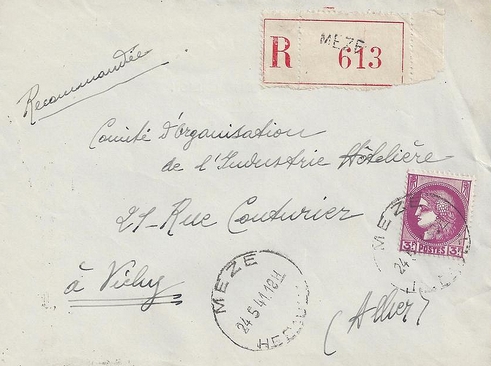 MEZE
R 613
Recommandée
Comité d'Organisation
de l'Industrie Hôtelière
21-Rue Couturier
à Vichy
(Allier)
3F POSTES 3F
MEZE
24
MEZE
24 5 41.18H
HERAULT